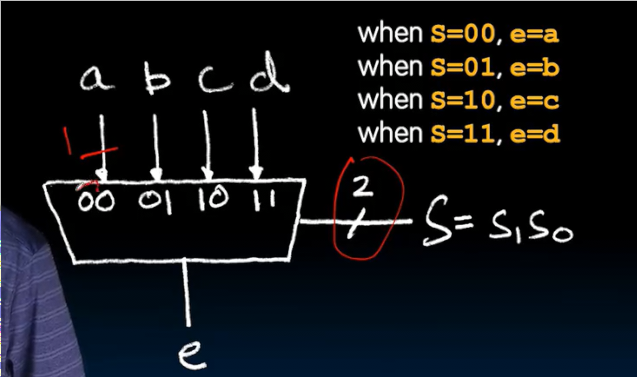 when S=00, e=a
when S=01, e=b
when S=10, e=c
when S=11, e=d
a b c d
1
00 01 10 11
2
S= S₁S₀
e